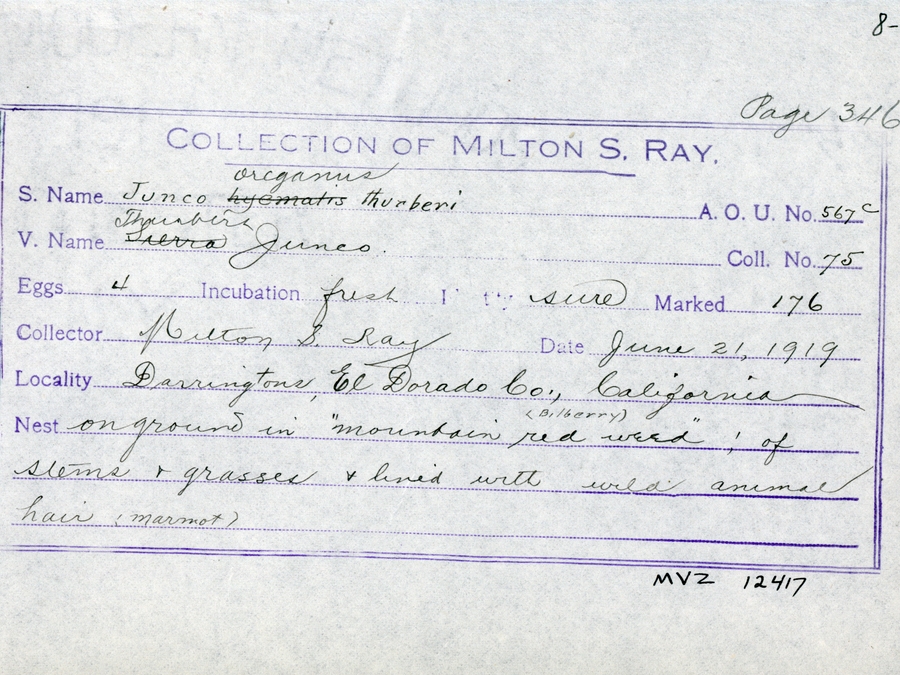 8-
Page 346
COLLECTION OF MILTON S. RAY.
oreganus
S. Name Junco hyemalis thurberi A. O. U. No. 567c
Thurber's
V. Name Sierra Junco. Coll. No. 75
Eggs 4 Incubation fresh sure Marked 176
Collector Milton S. Ray Date June 21, 1919
Locality Darringtons, El Dorado Co., California
(Bilberry)
Nest on ground in "mountain red weed"; of
stems & grasses & lined with wild animal
hair (marmot)
MVZ 12417